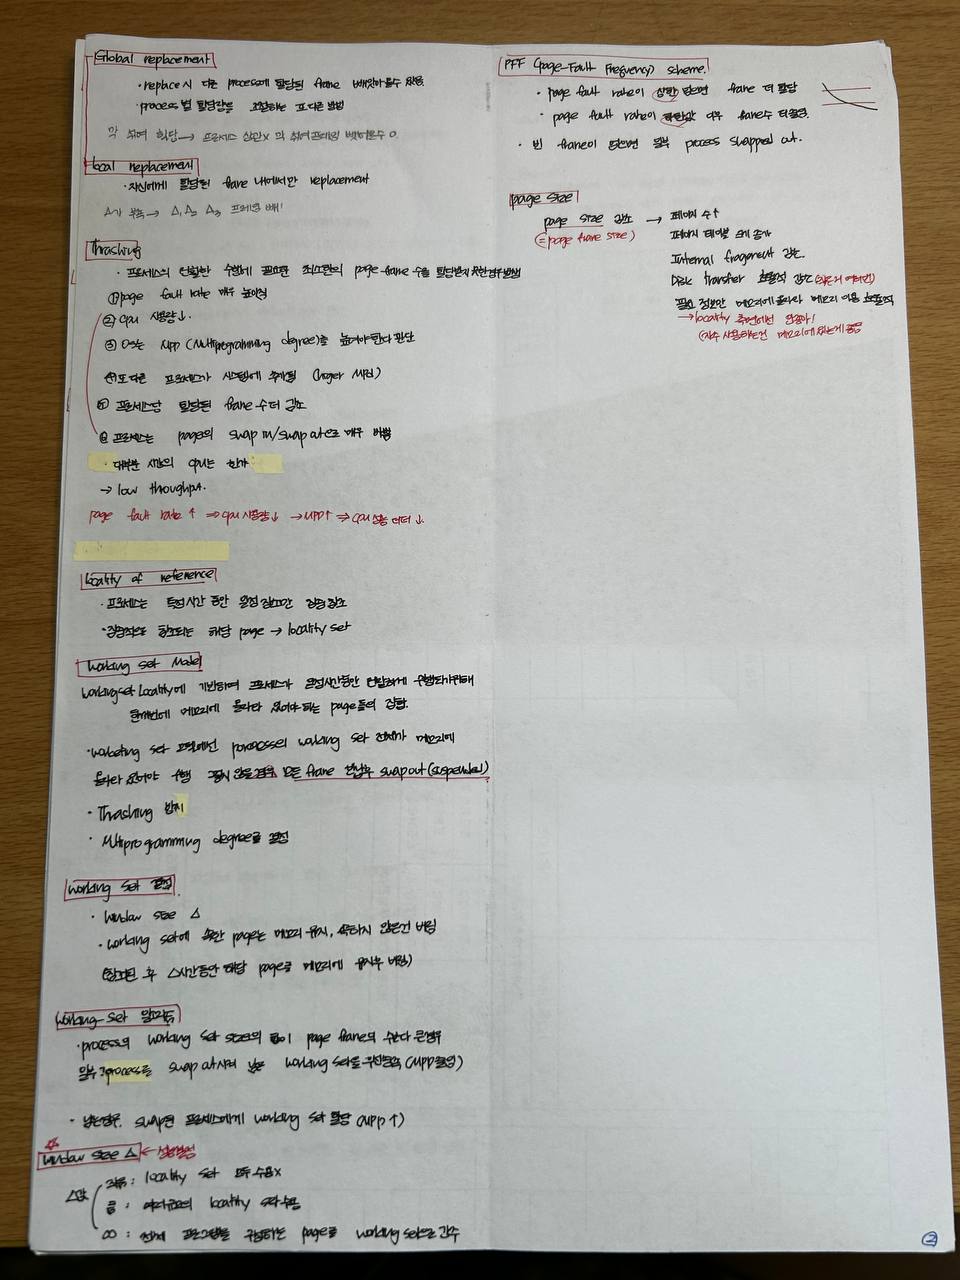 Global replacement
· replace시 다른 process에 할당된 frame 빼앗아올수 있음
· process 별 할당량을 조절하는 또 다른 방법
→ 프로세스 상관 x
local replacement
· 자신에게 할당된 frame 내에서만 replacement
Thrashing
· 프로세스의 원활한 수행에 필요한 최소한의 page-frame 수를 할당받지 못한경우 발생
① page fault rate 매우 높아짐
② CPU 사용량↓.
③ OS는 MPD (Multiprogramming degree)를 높여야한다 판단
④ 또다른 프로세스가 시스템에 추가됨 (higer MPD)
⑤ 프로세스당 할당된 frame 수 더 감소
⑥ 프로세스는 page의 swap in/swap out으로 매우 바쁨
· 대부분 시간의 CPU는 한가
→ low throughput.
page fault rate ↑ ⇒ CPU 사용량↓ → MPD↑ ⇒ CPU 더더 ↓.
locality of reference
· 프로세스는 특정시간 동안 일정 장소만 집중 참조
· 집중적으로 참조되는 해당 page → locality set
Working set Model
working set Locality에 기반하여 프로세스가 일정시간동안 원활하게 수행되기위해
한꺼번에 메모리에 올라와 있어야 되는 page들의 집합.
· working set 모델에선 process의 working set 전체가 메모리에
올라와 있어야 수행 그렇지 않을경우 모든 frame 반납후 swap out (suspended)
· Thrashing 방지
· Multiprogramming degree를 결정
working set 결정
· window size △
· working set에 속한 page는 메모리 유지, 속하지 않은건 버림
(참조된 후 △시간동안 해당 page를 메모리에 유지후 버림)
working-set 알고리즘
· process의 working set size의 합이 page frame의 수보다 큰경우
일부 process를 swap out시켜 남은 working set을 우선충족 (MPD줄임)
· 남는경우, swap된 프로세스에게 working set 할당 (MPD ↑)
☆
window size △ ←
△값 작음 : locality set 모두 수용x
큼 : 여러규모의 locality set 수용
∞ : 전체 프로그램을 구성하는 page를 working set으로 간주
PFF (page-Fault Frequency) scheme.
· page fault rate이 상한 넘으면 frame 더 할당
· page fault rate이 하한값 이하 frame수 더줄임.
· 빈 frame이 없으면 일부 process swapped out.
page size
page size 감소 → 페이지 수↑
(= page frame size)
페이지 테이블 크기 증가
Internal fragment 감소
Disk transfer 효율성 감소
필요 정보만 메모리에 올라와 메모리 이용 효율적
→ locality 측면에선 안좋아!
(자주 사용하는건 메모리에 있는게 좋음
②